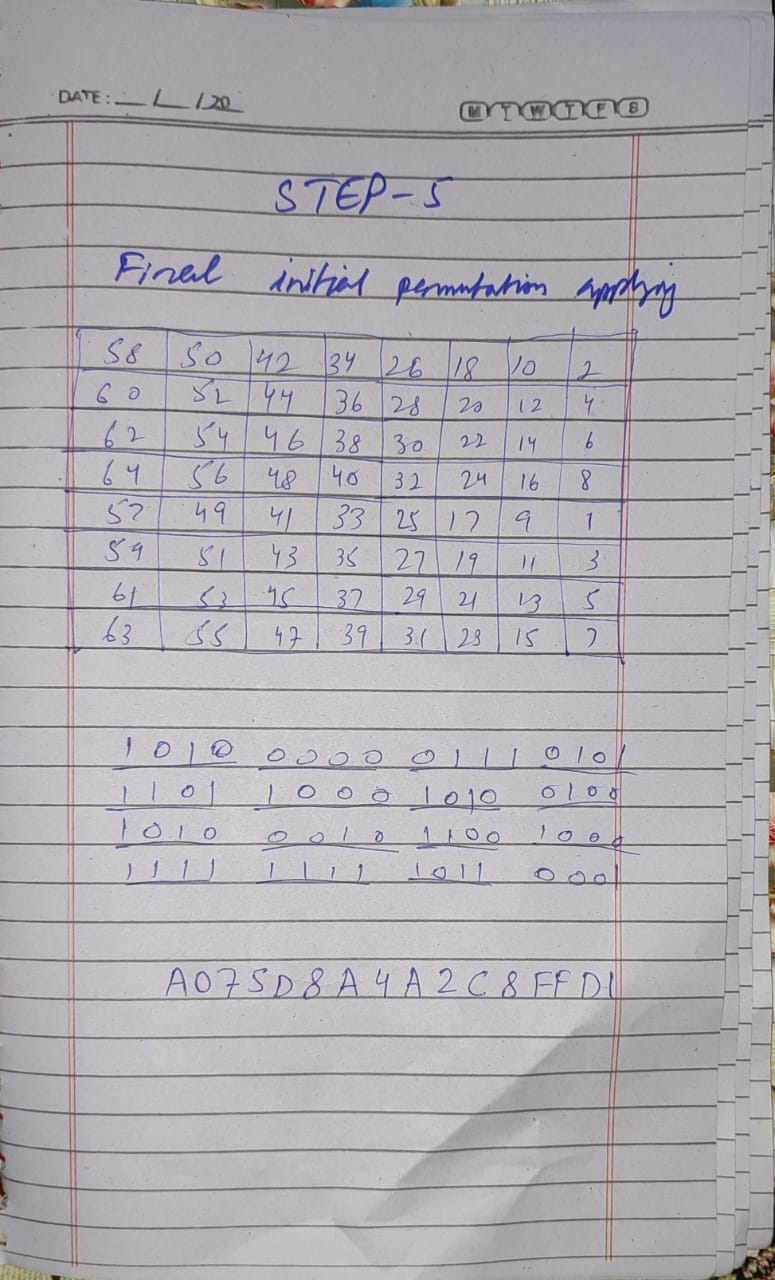 DATE: __/__/20__
M T W T F S
STEP-5
Final initial permutation applying
58 50 42 34 26 18 10 2
60 52 44 36 28 20 12 4
62 54 46 38 30 22 14 6
64 56 48 40 32 24 16 8
57 49 41 33 25 17 9 1
59 51 43 35 27 19 11 3
61 53 45 37 29 21 13 5
63 55 47 39 31 23 15 7
1010 0000 0111 0101
1101 1000 1010 0100
1010 0010 1100 1000
1111 1111 1011 0001
A075D8A4A2C8FFD1